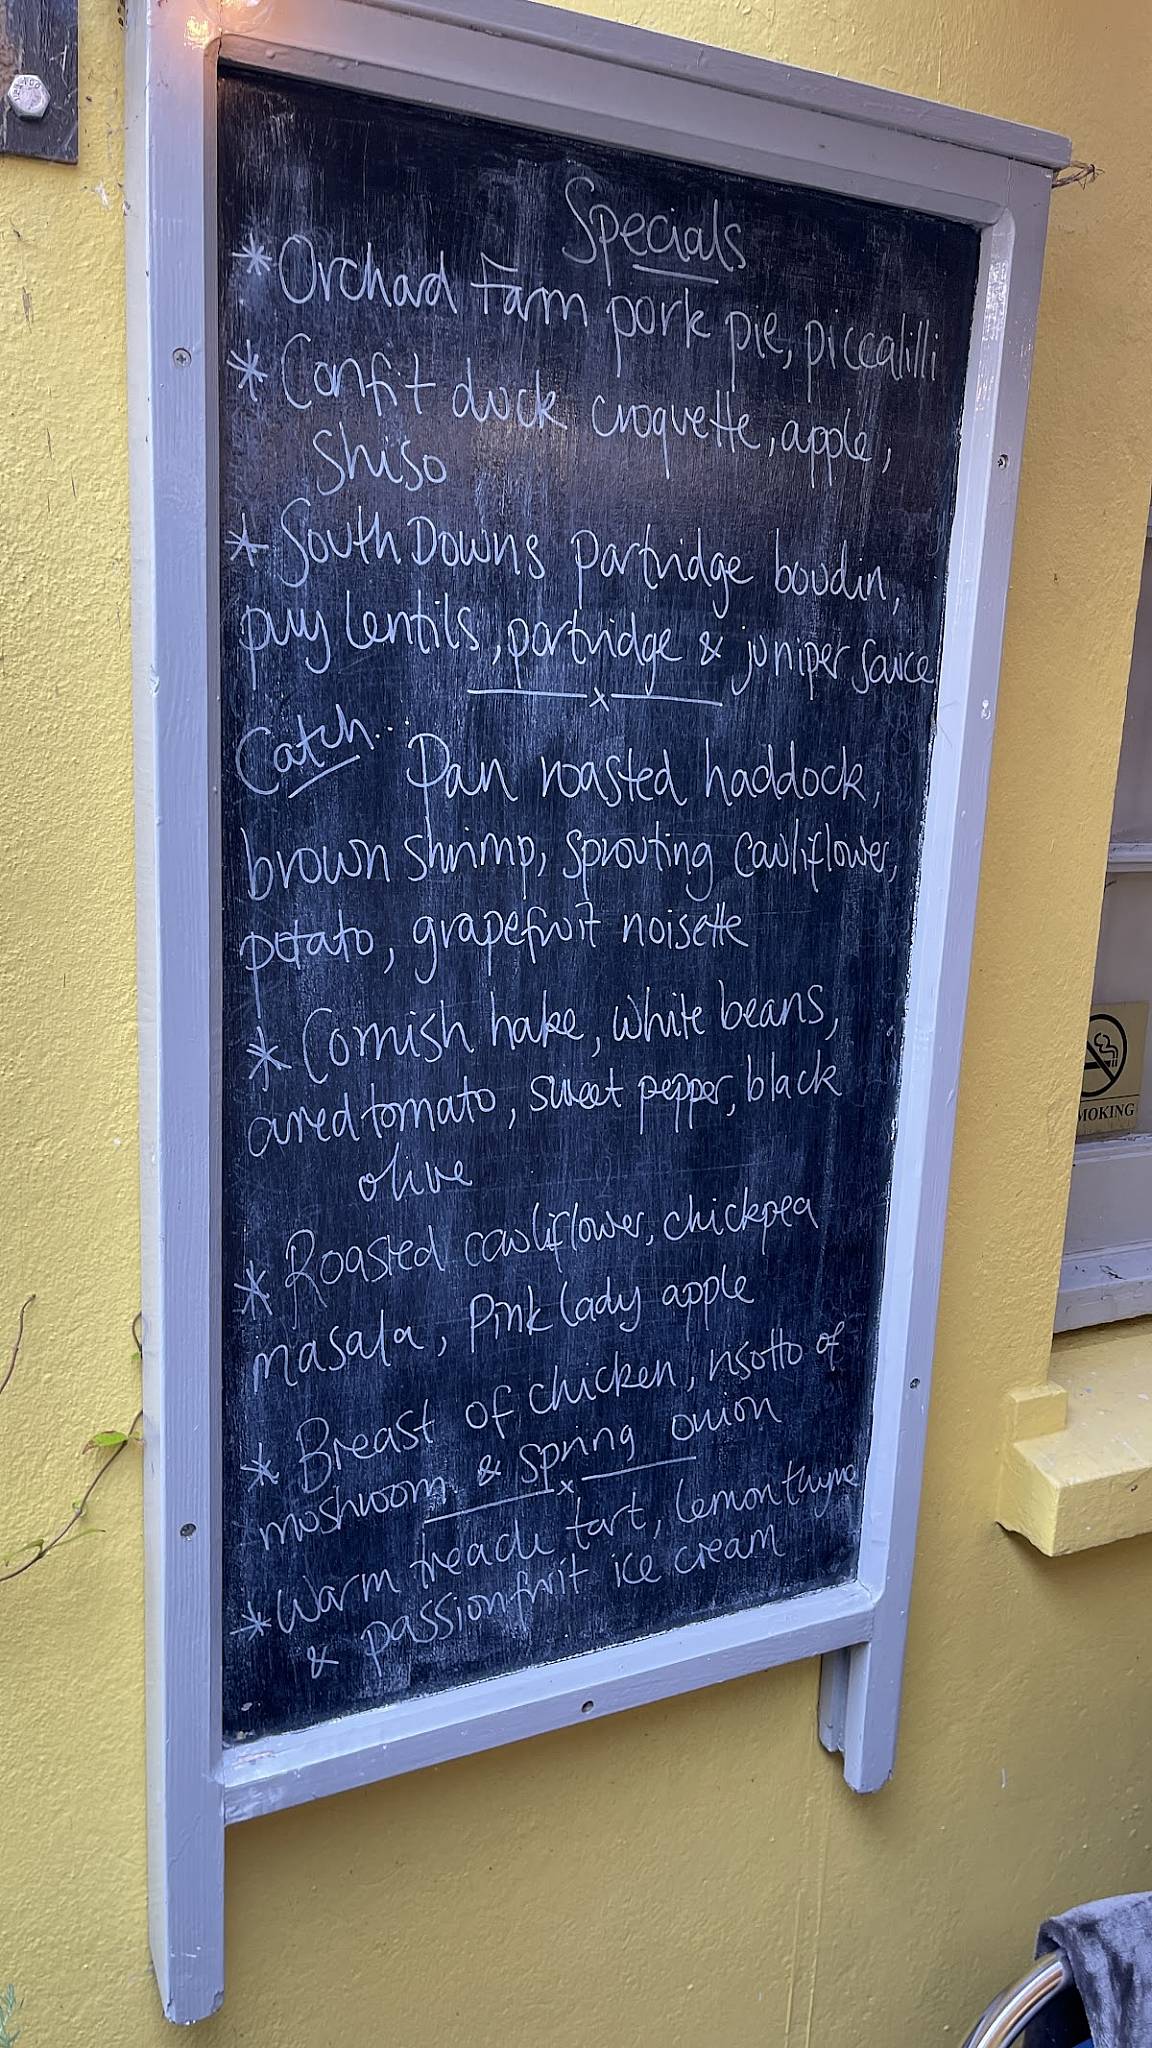 Specials
* Orchard Farm pork pie, piccalilli
* Confit duck croquette, apple,
shiso
* South Downs partridge boudin,
puy lentils, partridge & juniper sauce
x
Catch... Pan roasted haddock,
brown shrimp, sprouting cauliflower,
potato, grapefruit noisette
* Cornish hake, white beans,
cured tomato, sweet pepper, black
olive
* Roasted cauliflower, chickpea
masala, Pink lady apple
* Breast of chicken, risotto of
mushroom & spring onion
x
* Warm treacle tart, lemon thyme
& passionfruit ice cream
MOKING